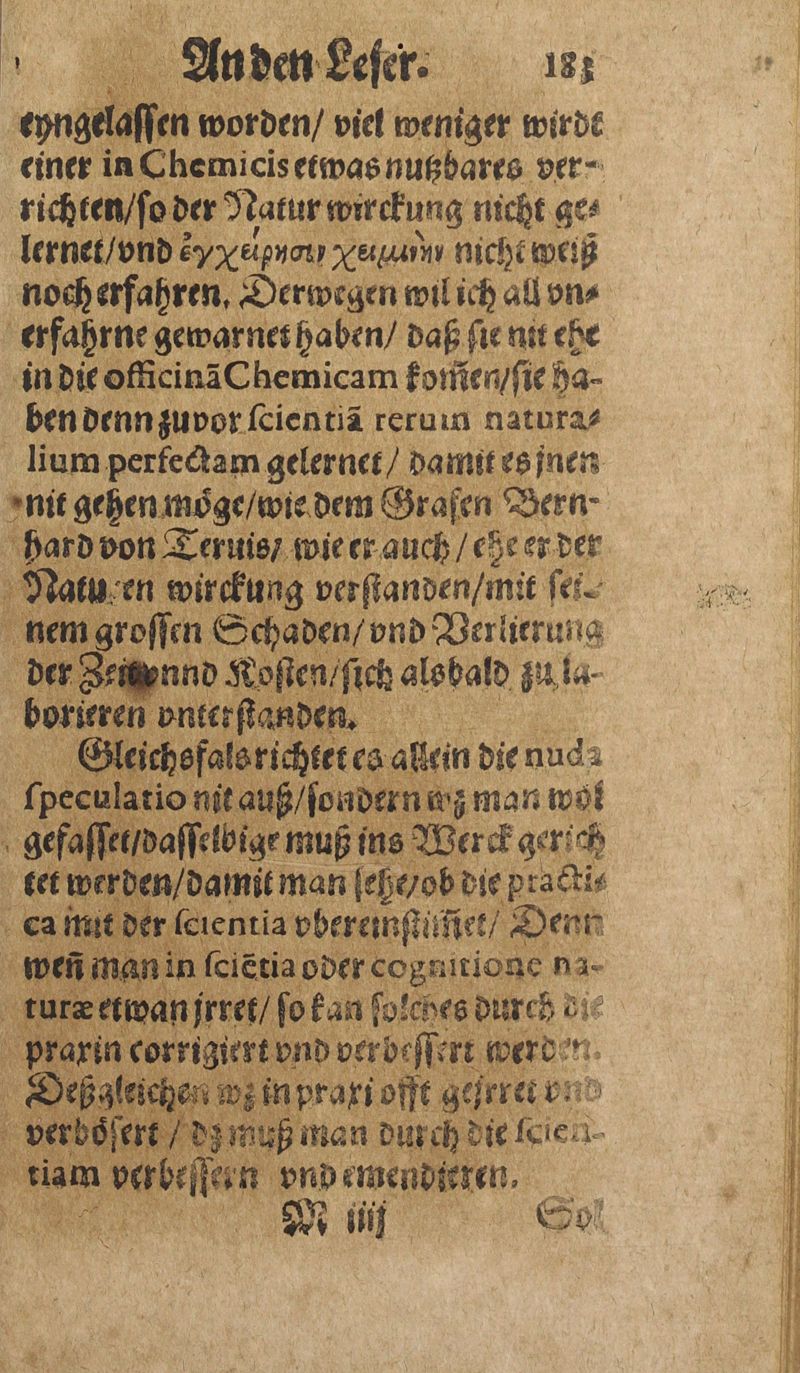 An den Leser. 183
eyngelassen worden/ viel weniger wirdt
einer in Chemicis etwas nutzbares ver-
richten/so der Natur wirckung nicht ge-
lernet/vnd ἐγχείρησιν χειμικὴν nicht weiß
noch erfahren. Derwegen wil ich all vn-
erfahrne gewarnet haben/ daß sie nit ehe
in die officinã Chemicam kom̃en/sie ha-
ben denn zuvor scientiã rerum natura-
lium perfectam gelernet/ damit es jnen
nit gehen möge/wie dem Grafen Bern-
hard von Teruis/ wie er auch / ehe er der
Naturen wirckung verstanden/mit sei-
nem grossen Schaden/vnd Verlierung
der Zeit vnnd Kosten/sich alsbald zu la-
borieren vnterstanden.
Gleichsfals richtet es allein die nuda
speculatio nit auß/sondern wz man wol
gefasset/dasselbige muß ins Werck gerich
tet werden/damit man sehe/ob die practi-
ca mit der scientia vbereinstim̃et/ Denn
weñ man in sciẽtia oder cognitione na-
turæ etwan jrret/ so kan solches durch die
praxin corrigiert vnd verbessert werden.
Deßgleichen wz in praxi offt gejrret vnd
verbösert / dz muß man durch die scien-
tiam verbessern vnd emendieren.
M iiij Sol